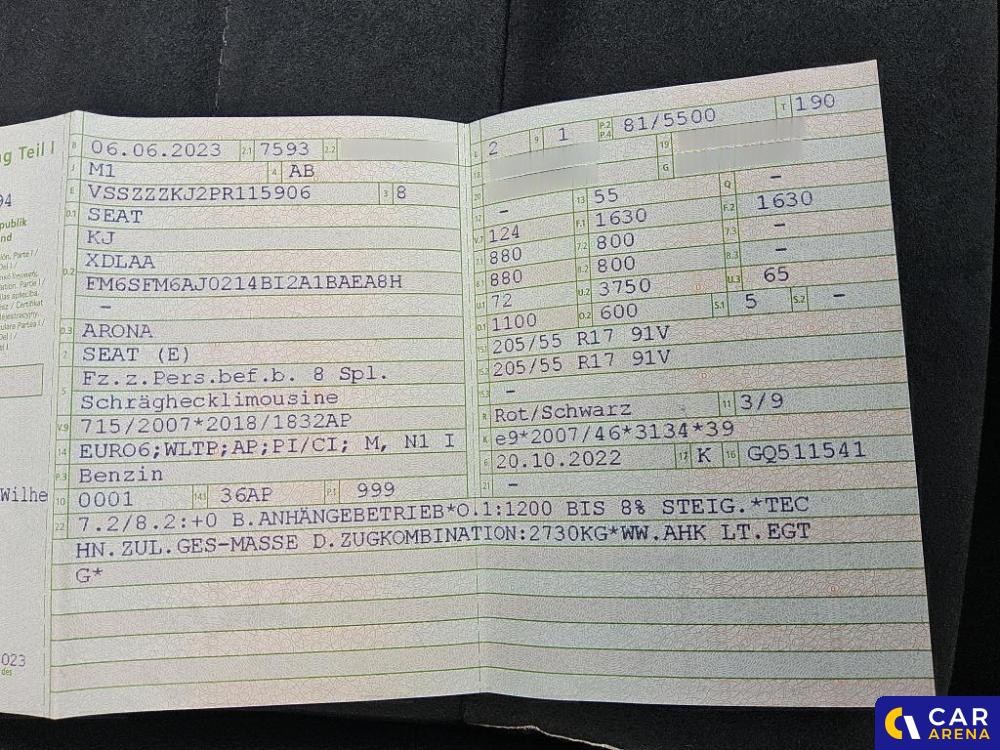 ng Teil I
94
publik
nd
Wilhe
023
des
B 06.06.2023 2.1 7593 2.2
J M1 4 AB
E VSSZZZKJ2PR115906 3 8
D.1 SEAT
KJ
D.2 XDLAA
FM6SFM6AJ0214BI2A1BAEA8H
–
D.3 ARONA
2 SEAT (E)
Fz.z.Pers.bef.b. 8 Spl.
5 Schräghecklimousine
V.9 715/2007*2018/1832AP
14 EURO6;WLTP;AP;PI/CI; M, N1 I
P.3 Benzin
10 0001 14.1 36AP P.1 999
L 2 9 1 P.2 P.4 81/5500 T 190
19
20 G
12 – 13 55 Q –
V.7 124 F.1 1630 F.2 1630
7.1 880 7.2 800 7.3 –
8.1 880 8.2 800 8.3 –
U.1 72 U.2 3750 U.3 65
O.1 1100 O.2 600 S.1 5 S.2 –
15.1 205/55 R17 91V
15.2 205/55 R17 91V
15.3 –
R Rot/Schwarz 11 3/9
K e9*2007/46*3134*39
6 20.10.2022 17 K 16 GQ511541
21 –
22 7.2/8.2:+0 B.ANHÄNGEBETRIEB*O.1:1200 BIS 8% STEIG.*TEC
HN.ZUL.GES-MASSE D.ZUGKOMBINATION:2730KG*WW.AHK LT.EGT
G*
CAR
ARENA